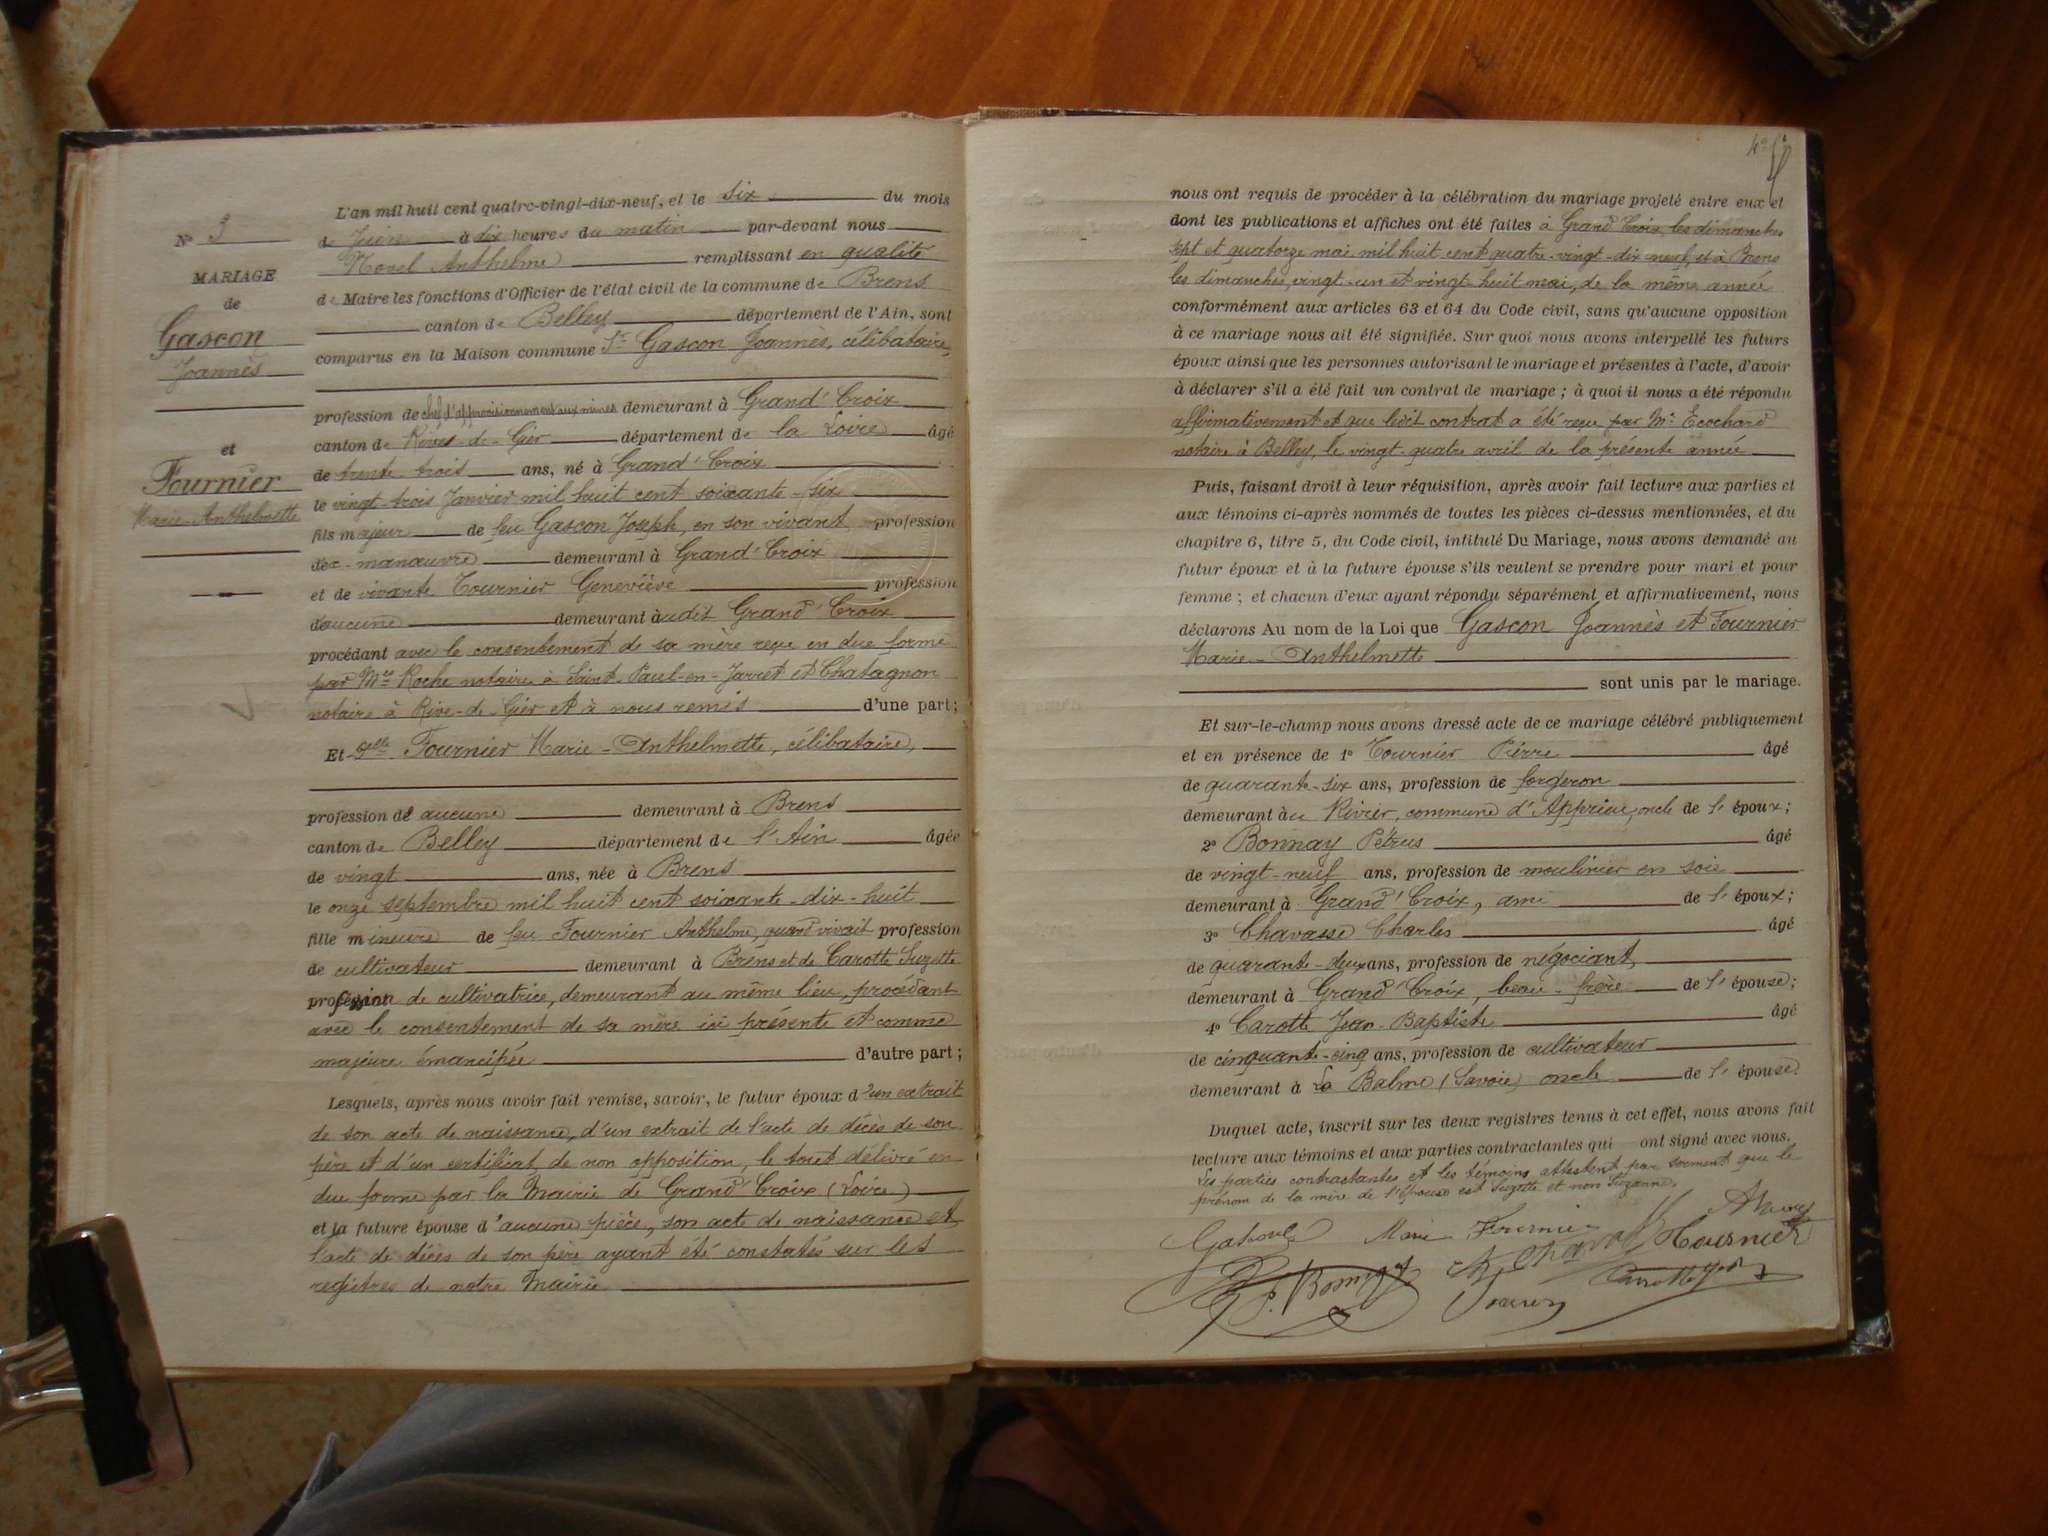 Nº 3
MARIAGE
de
Gascon
Joannès
et
Fournier
Marie-Anthelmette
L'an mil huit cent quatre-vingt-dix-neuf, et le six du mois
de Juin à dix heures du matin par-devant nous
Morel Anthelme remplissant en qualité
de Maire les fonctions d'Officier de l'état civil de la commune de Brens
canton de Belley département de l'Ain, sont
comparus en la Maison commune Sr Gascon Joannès, célibataire,
profession de chef d'approvisionnement aux mines demeurant à Grand' Croix
canton de Rives-de-Gier département de la Loire âgé
de trente trois ans, né à Grand' Croix
le vingt-trois Janvier mil huit cent soixante-six
fils majeur de feu Gascon Joseph, en son vivant profession
de manœuvre demeurant à Grand' Croix
et de vivante Tournier Geneviève profession
d'aucune demeurant audit Grand' Croix
procédant avec le consentement de sa mère reçu en due forme
par Mes Roche notaire à Saint Paul-en-Jarret et Chatagnon
notaire à Rive-de-Gier et à nous remis d'une part;
Et Delle Fournier Marie-Anthelmette, célibataire,
profession de aucune demeurant à Brens
canton de Belley département de l'Ain âgée
de vingt ans, née à Brens
le onze septembre mil huit cent soixante-dix-huit
fille mineure de feu Fournier Anthelme, quand vivait profession
de cultivateur demeurant à Brens et de Carotte Suzette
profession de cultivatrice, demeurant au même lieu, procédant
avec le consentement de sa mère ici présente et comme
majeure émancipée d'autre part;
Lesquels, après nous avoir fait remise, savoir, le futur époux d'un extrait
de son acte de naissance, d'un extrait de l'acte de décès de son
père et d'un certificat de non opposition, le tout délivré en
due forme par la Mairie de Grand' Croix (Loire)
et la future épouse d'aucune pièce, son acte de naissance et
l'acte de décès de son père ayant été constatés sur les
registres de notre Mairie
nous ont requis de procéder à la célébration du mariage projeté entre eux et
dont les publications et affiches ont été faites à Grand' Croix, les dimanches
sept et quatorze mai mil huit cent quatre-vingt-dix neuf, et à Brens
les dimanches vingt-un et vingt-huit mai, de la même année
conformément aux articles 63 et 64 du Code civil, sans qu'aucune opposition
à ce mariage nous ait été signifiée. Sur quoi nous avons interpellé les futurs
époux ainsi que les personnes autorisant le mariage et présentes à l'acte, d'avoir
à déclarer s'il a été fait un contrat de mariage; à quoi il nous a été répondu
affirmativement et que ledit contrat a été reçu par Me Ecochard
notaire à Belley, le vingt-quatre avril de la présente année
Puis, faisant droit à leur réquisition, après avoir fait lecture aux parties et
aux témoins ci-après nommés de toutes les pièces ci-dessus mentionnées, et du
chapitre 6, titre 5, du Code civil, intitulé Du Mariage, nous avons demandé au
futur époux et à la future épouse s'ils veulent se prendre pour mari et pour
femme; et chacun d'eux ayant répondu séparément et affirmativement, nous
déclarons Au nom de la Loi que Gascon Joannès et Fournier
Marie-Anthelmette
sont unis par le mariage.
Et sur-le-champ nous avons dressé acte de ce mariage célébré publiquement
et en présence de 1º Tournier Pierre âgé
de quarante-six ans, profession de forgeron
demeurant au Rivier, commune d'Apprieu, oncle de l'époux;
2º Bonnay Pétrus âgé
de vingt-neuf ans, profession de moulinier en soie
demeurant à Grand' Croix, ami de l'époux;
3º Chavasse Charles âgé
de quarante-deux ans, profession de négociant,
demeurant à Grand' Croix, beau-frère de l'épouse;
4º Carotte Jean-Baptiste âgé
de cinquante-cinq ans, profession de cultivateur
demeurant à La Balme (Savoie) oncle de l'épouse.
Duquel acte, inscrit sur les deux registres tenus à cet effet, nous avons fait
lecture aux témoins et aux parties contractantes qui ont signé avec nous.
Les parties contractantes et les témoins attestent par serment que le
prénom de la mère de l'épouse est Suzette et non Suzanne.
Marie Fournier
Tournier
P. Bonnay